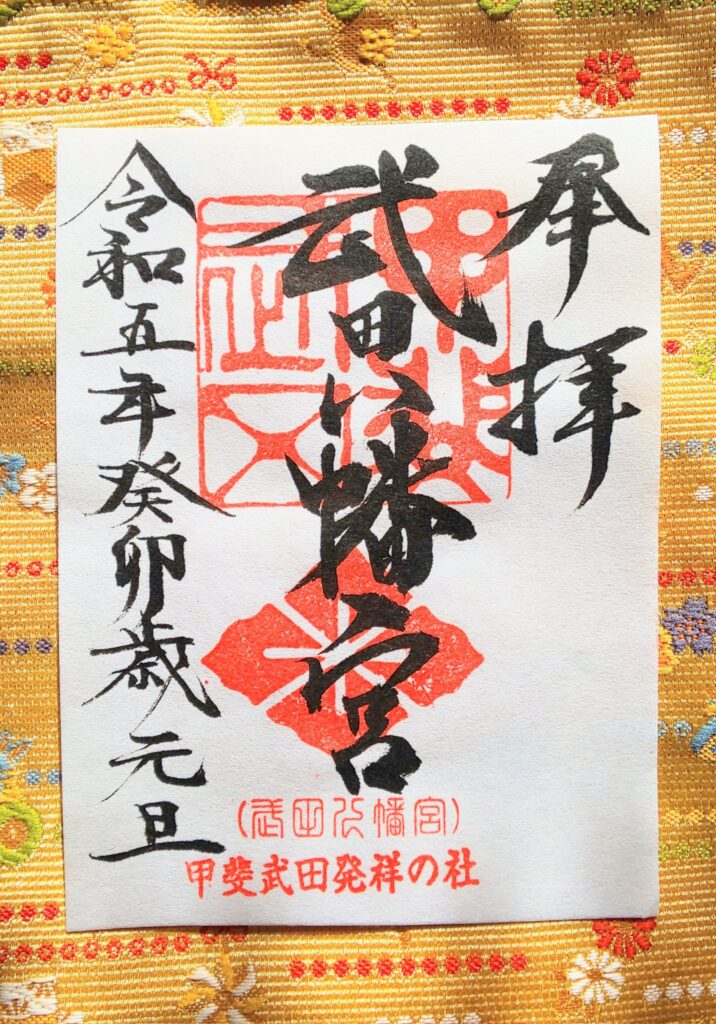 奉拝
武田八幡宮
(武田八幡宮)
甲斐武田発祥の社
令和五年癸卯歳元旦